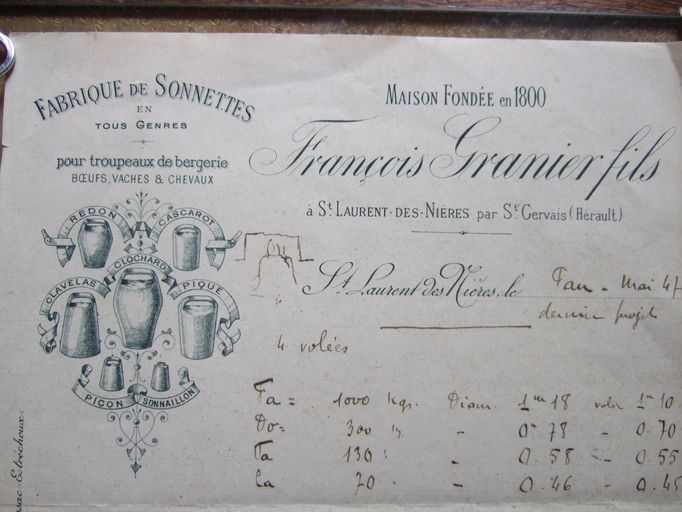 FABRIQUE DE SONNETTES
EN
TOUS GENRES
pour troupeaux de bergerie
BŒUFS, VACHES & CHEVAUX
REDON
CASCAROT
CLOCHARD
CLAVELAS
PIQUE
PICON
SONNAILLON
MAISON FONDÉE en 1800
François Granier fils
à St LAURENT-DES-NIÈRES par St Gervais (Hérault)
St Laurent des Nières, le - Mai 47
dernier projet
4 volées
Fa = 1000 kgs. Diam 1m 18 1m 10
Do = 300 k - 0m 78 - 0.70
Fa 130 - 0.58 - 0.55
La 70 - 0.46 - 0.45